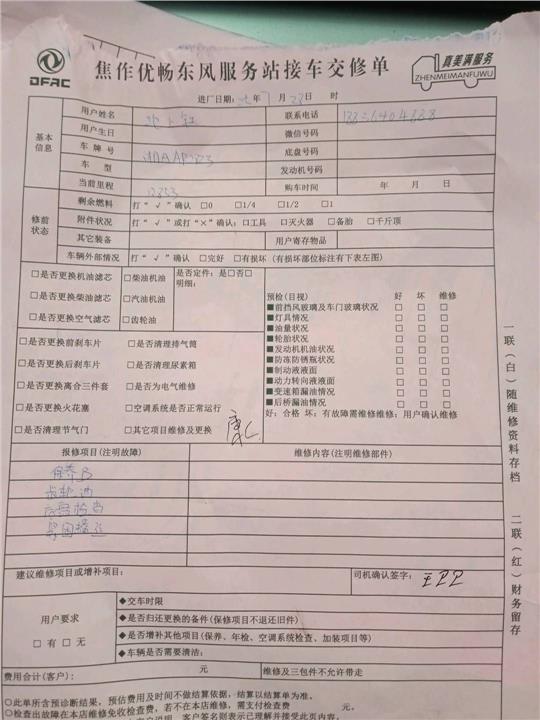 DFAC
焦作优畅东风服务站接车交修单
真美满服务
ZHENMEIMANFUWU
进厂日期: 年7月28日 时
基本信息
用户姓名
联系电话
用户生日
微信号码
车牌号
底盘号码
车型
发动机号码
当前里程
购车时间 年 月 日
修前状态
剩余燃料 打“√”确认 □0 □1/4 □1/2 □1
附件状况 打“√”或打“×”确认:□工具 □灭火器 □备胎 □千斤顶
其它装备
用户寄存物品
车辆外部情况 打“√”确认 □完好 □有损坏(有损坏部位标注有下表左图)
□是否更换机油滤芯 □柴油机油 是否定件:是□否□
明细:
□是否更换柴油滤芯 □汽油机油
□是否更换空气滤芯 □齿轮油
预检(目视) 好 坏 维修
■前挡风玻璃及车门玻璃状况 □ □ □
■灯具情况 □ □ □
■油量状况 □ □ □
■轮胎状况 □ □ □
■发动机机油状况 □ □ □
■防冻防锈瓶状况 □ □ □
■制动液液面 □ □ □
■动力转向液液面 □ □ □
■变速箱漏油情况 □ □ □
■后桥漏油情况 □ □ □
好:合格 坏:有故障需维修维修:用户确认维修
□是否更换前刹车片 □是否清理排气筒
□是否更换后刹车片 □是否清理尿素箱
□是否更换离合三件套 □是否为电气维修
□是否更换火花塞 □空调系统是否正常运行
□是否清理节气门 □其它项目维修及更换
报修项目(注明故障)
维修内容(注明维修部件)
保养B
齿轮油
建议维修项目或增补项目:
司机确认签字:
用户要求
□有 □无
◆交车时限
◆是否归还更换的备件(保修项目不退还旧件)
◆是否增补其他项目(保养、年检、空调系统检查、加装项目等)
◆车辆是否需要清洁:
费用合计(客户): 元
维修及三包件不允许带走
○此单所含预诊断结果,预估费用及时间不做结算依据,结算以结算单为准。
○检查出故障在本店维修免收检查费,若不在本店维修,需支付检查费 元。
客户签名则表示已理解并接受此页内容。
一联(白)随维修资料存档
二联(红)财务留存